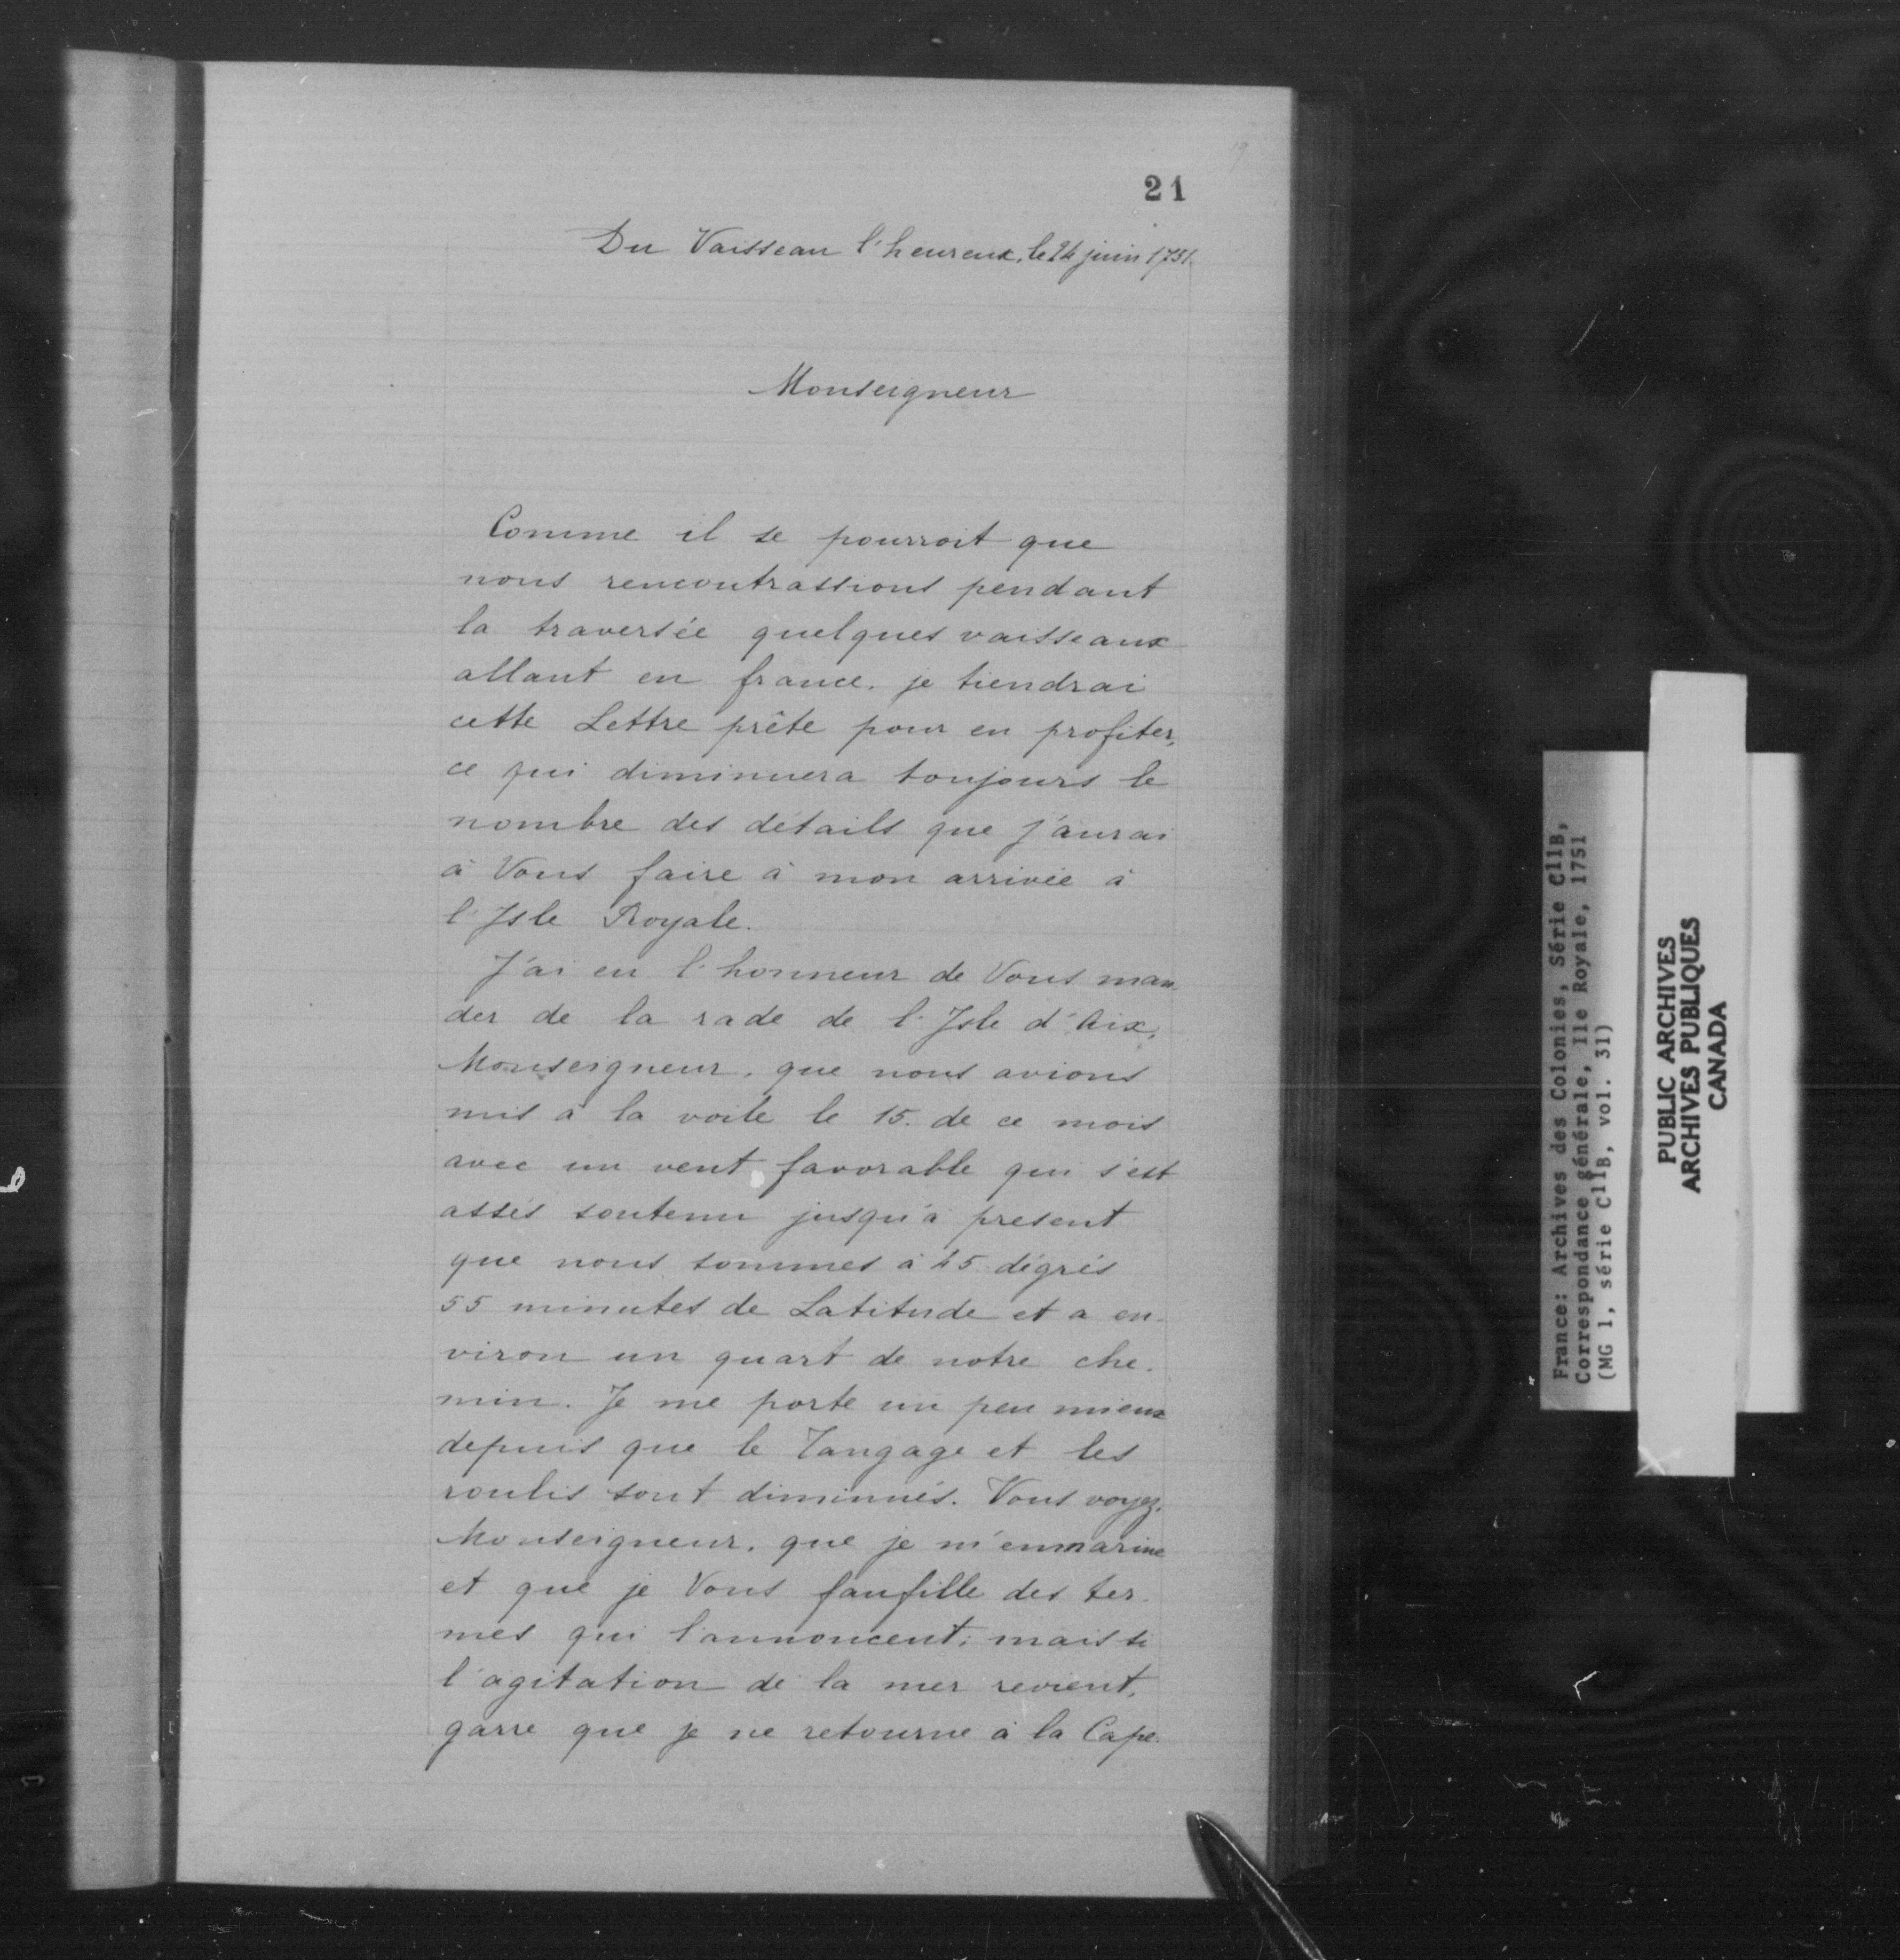 21
Du Vaisseau l'heureux, le 24 juin 1751.
Monseigneur
Comme il se pourroit que
nous rencontrassions pendant
la traversée quelques vaisseaux
allant en france, je tiendrai
cette Lettre prête pour en profiter,
ce qui diminuera toujours le
nombre des détails que j'aurai
à Vous faire à mon arrivée à
l'Isle Royale.
J'ai eu l'honneur de Vous man-
der de la rade de l'Isle d'Aix,
Monseigneur, que nous avions
mis à la voile le 15. de ce mois
avec un vent favorable qui s'est
assés soutenu jusqu'à present
que nous sommes à 45 dégrés
55 minutes de Latitude et a en-
viron un quart de notre che-
min. Je me porte un peu mieux
depuis que le Tangage et les
roulis sont diminués. Vous voyez,
Monseigneur, que je m'enmarine
et que je Vous faufille des ter-
mes qui l'annoncent; mais si
l'agitation de la mer revient,
garre que je ne retourne à la Cape.
France: Archives des Colonies, Série C11B,
Correspondance générale, Ile Royale, 1751
(MG 1, série C11B, vol. 31)
PUBLIC ARCHIVES
ARCHIVES PUBLIQUES
CANADA